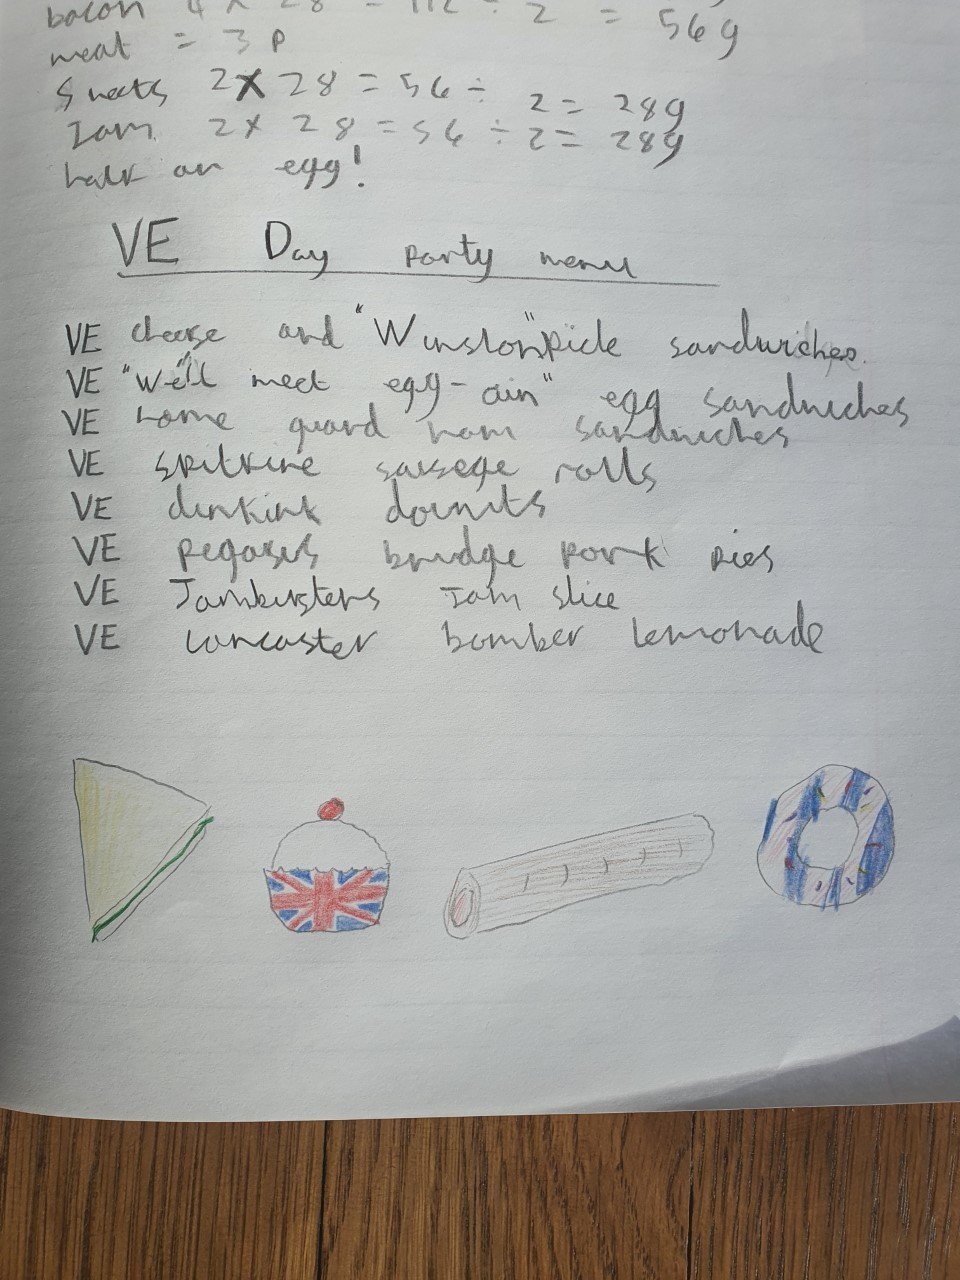 bacon 4 x 28 = 112 ÷ 2 = 56g
meat = 3p
Sweets 2x 28 = 56 ÷ 2 = 28g
Jam 2x 28 = 56 ÷ 2 = 28g
half an egg!
VE Day party menu
VE cheese and "Winston" pickle sandwiches.
VE "We'll meet egg-ain" egg sandwiches
VE home guard ham sandwiches
VE spitfire sausege rolls
VE dunkirk dounuts
VE pegasus bridge pork pies
VE Jambusters Jam slice
VE Lancaster bomber lemonade